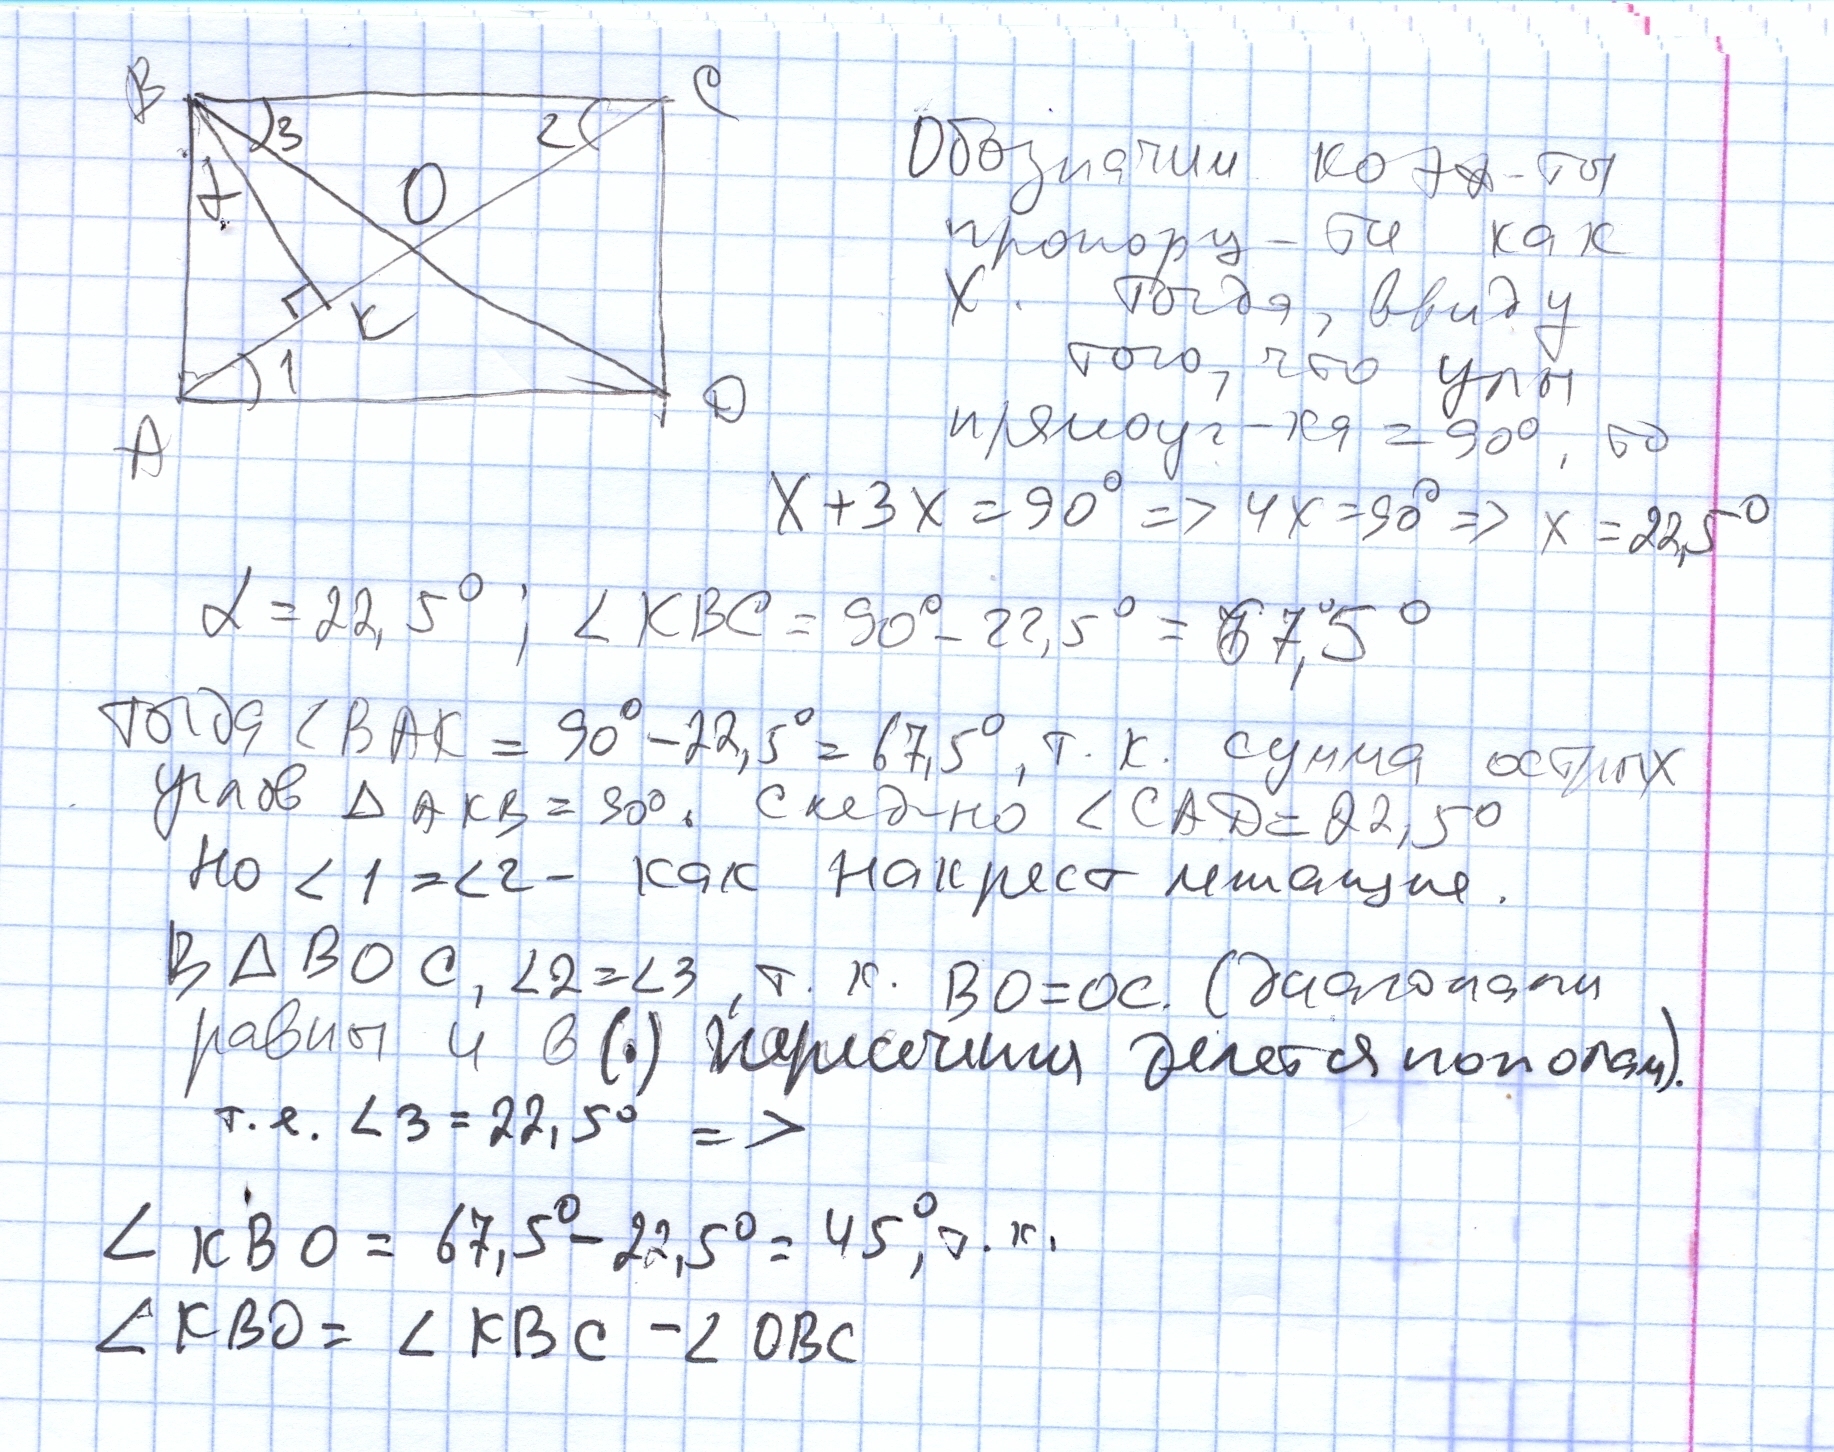 B
C
3
2
O
α
K
1
A
D
Обозначим коэф-ты
пропорц-ти как
X. Тогда, ввиду
того, что углы
прямоуг-ка = 90°, то
X + 3X = 90° => 4X = 90° => X = 22,5°
α = 22,5°; ∠KBC = 90° - 22,5° = 67,5°
тогда ∠BAK = 90° - 22,5° = 67,5°, т. к. сумма острых
углов Δ AKB = 90°. След-но ∠CAD = 22,5°
Но ∠1 = ∠2 - как накрест лежащие.
В Δ BOC, ∠2 = ∠3, т. к. BO = OC. (Диагонали
равны и в (.) пересечения делятся пополам).
т.е. ∠3 = 22,5° =>
∠KBO = 67,5° - 22,5° = 45°, т. к.
∠KBO = ∠KBC - ∠OBC